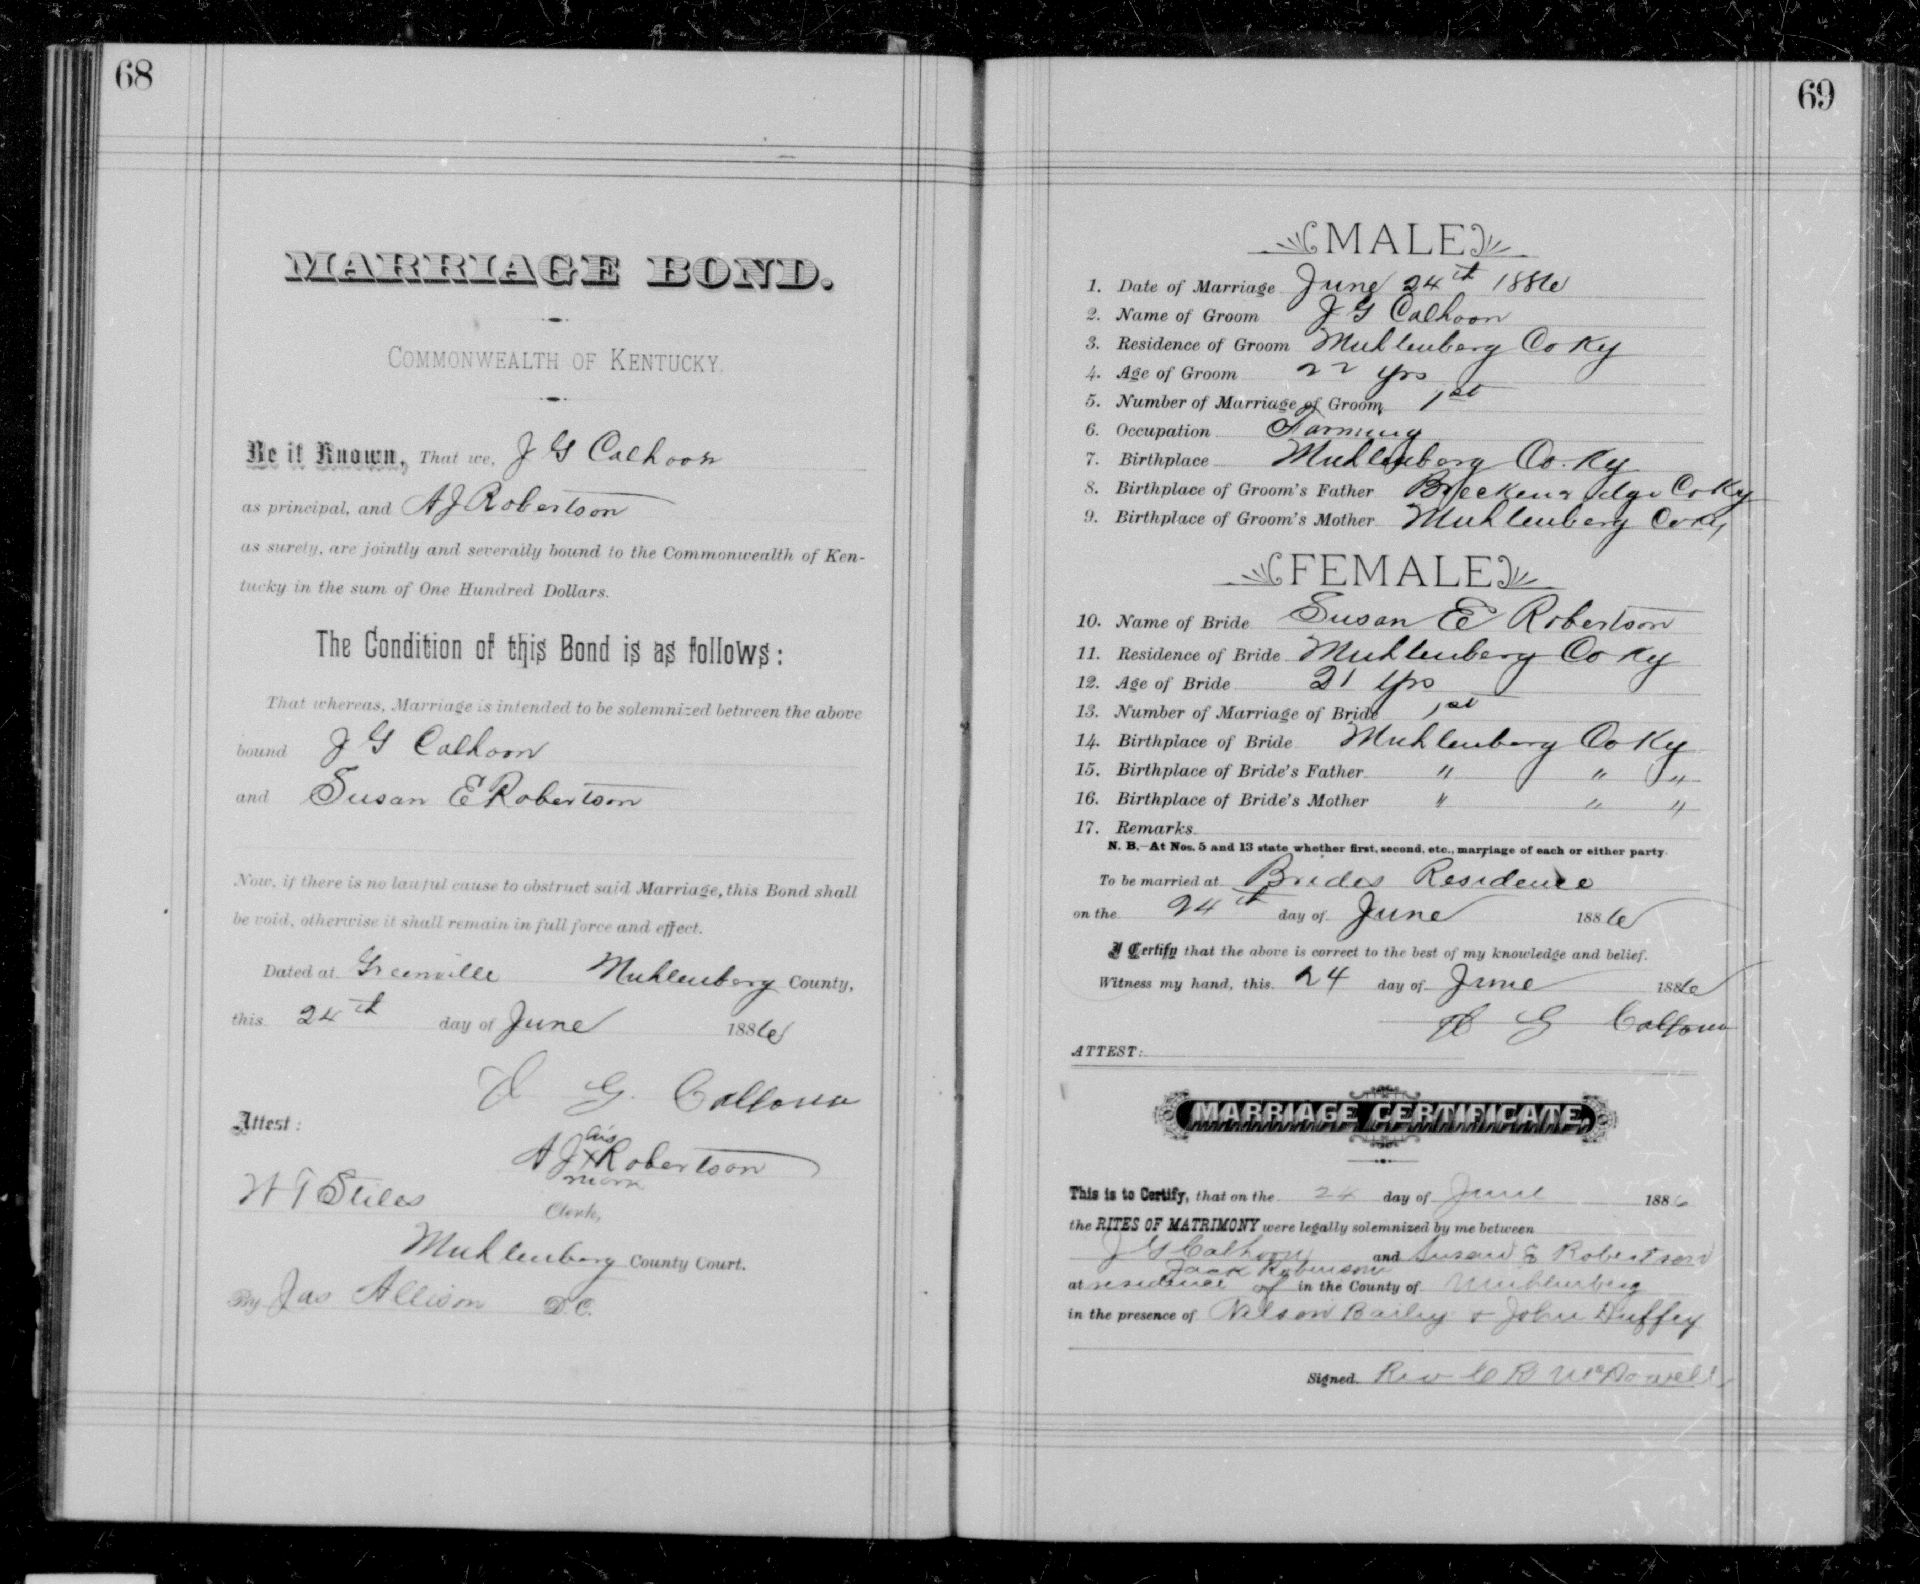 68
MARRIAGE BOND.
COMMONWEALTH OF KENTUCKY.
Be it Known, That we, J G Calhoon
as principal, and A J Robertson
as surety, are jointly and severally bound to the Commonwealth of Ken-
tucky in the sum of One Hundred Dollars.
The Condition of this Bond is as follows:
That whereas, Marriage is intended to be solemnized between the above
bound J G Calhoon
and Susan E Robertson
Now, if there is no lawful cause to obstruct said Marriage, this Bond shall
be void, otherwise it shall remain in full force and effect.
Dated at Greenville Muhlenberg County,
this 24th day of June 1886
J G. Calhoun
Attest:
his
A J X Robertson
mark
W T Stiles Clerk,
Muhlenberg County Court.
By Jas Allison D.C.
69
MALE
1. Date of Marriage June 24th 1886
2. Name of Groom J G Calhoon
3. Residence of Groom Muhlenberg Co Ky
4. Age of Groom 22 yrs
5. Number of Marriage of Groom 1st
6. Occupation Farming
7. Birthplace Muhlenberg Co. Ky
8. Birthplace of Groom's Father Breckenridge Co Ky
9. Birthplace of Groom's Mother Muhlenberg Co Ky
FEMALE
10. Name of Bride Susan E Robertson
11. Residence of Bride Muhlenberg Co Ky
12. Age of Bride 21 yrs
13. Number of Marriage of Bride 1st
14. Birthplace of Bride Muhlenberg Co Ky
15. Birthplace of Bride's Father " " "
16. Birthplace of Bride's Mother " " "
17. Remarks
N. B.—At Nos. 5 and 13 state whether first, second, etc., marriage of each or either party.
To be married at Brides Residence
on the 24th day of June 1886
I Certify that the above is correct to the best of my knowledge and belief.
Witness my hand, this 24 day of June 1886
J G Calhoun
ATTEST:
MARRIAGE CERTIFICATE.
This is to Certify, that on the 24 day of June 1886
the RITES OF MATRIMONY were legally solemnized by me between
J G Calhoon and Susan E Robertson
Jack Robinson
at residence of in the County of Muhlenberg
in the presence of Nelson Bailey & John Duffey
Signed. Rev C R McDowell